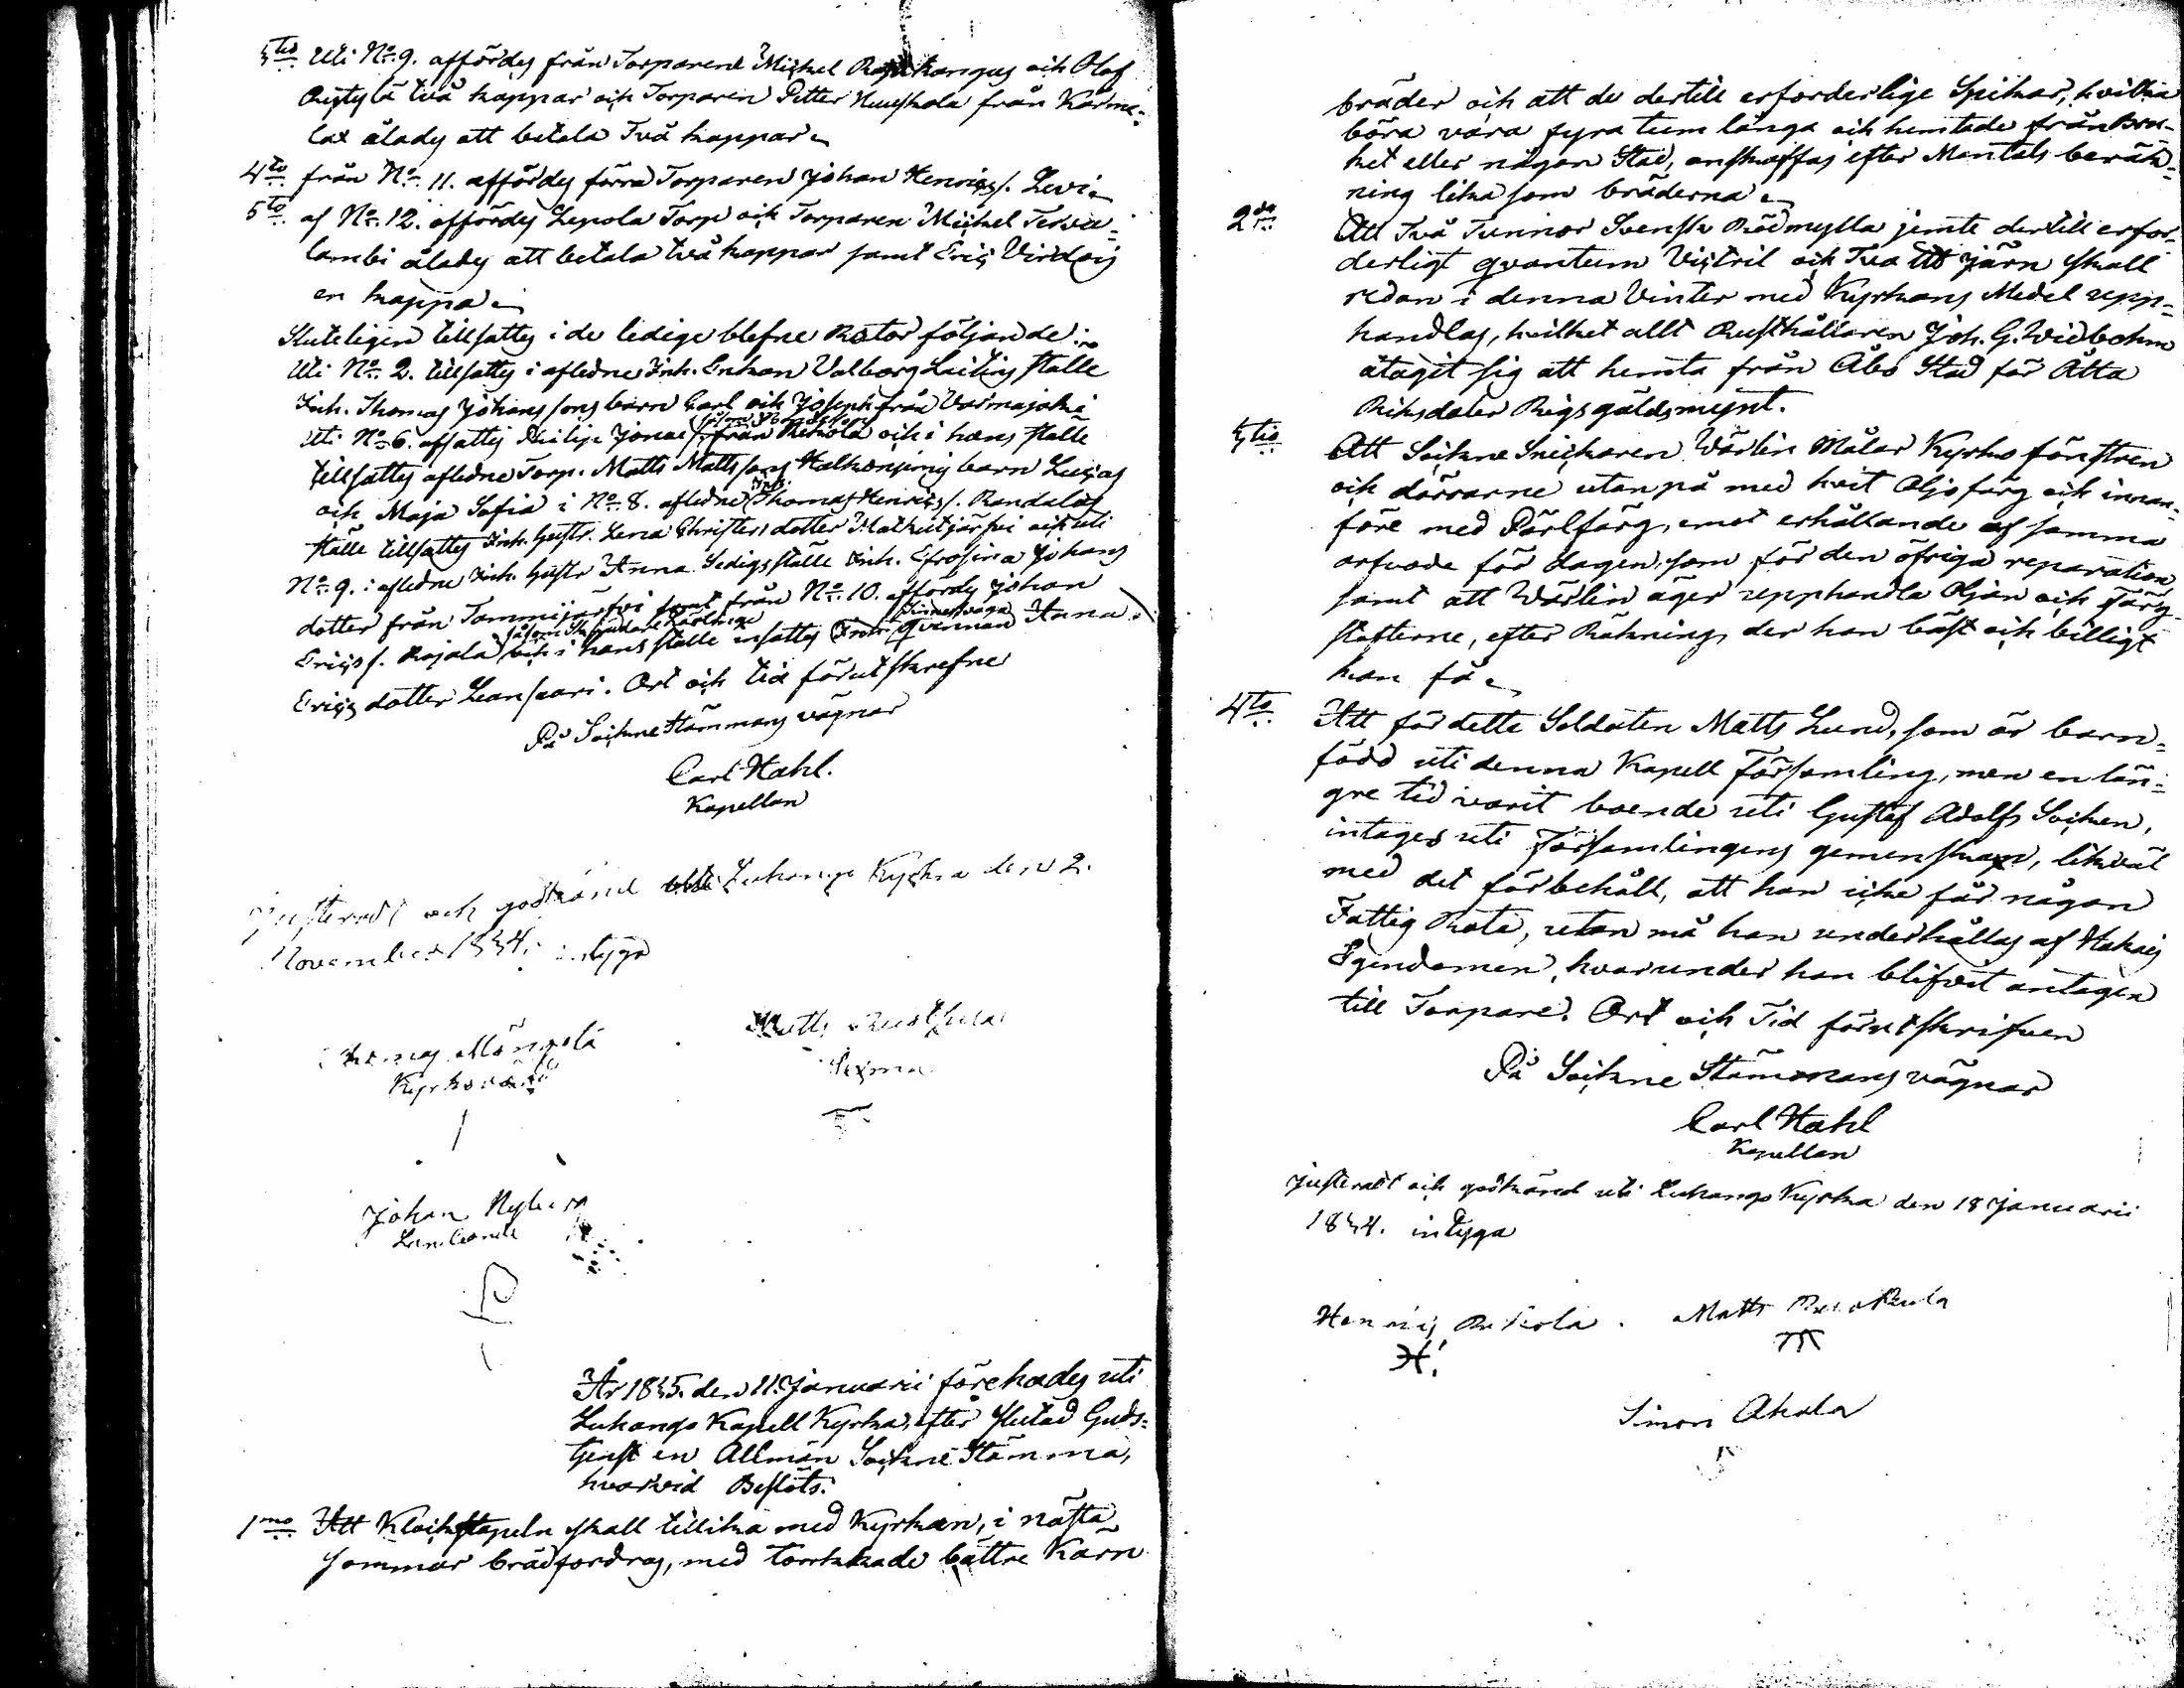 3tio Uti No 9. affördes från Torparene Michel och Olof
Rystylä två kappar och Torparen Petter Kuuskola från Karme=
lax ålades att betala Två kappar
4to från No 11. affördes förra Torparen Johan Henricss. Levi
5to af No 12. affördes Lepola Torp och Torparen Michel Terva=
lambi ålades att betala två kappar samt Eric Virdois
en kappa
Sluteligen tillsattes i de ledige blefne Rotor följande:
Uti No 2. tillsattes i afledne Inh. Enkan Valborg Lailins ställe
Inh. Thomas Johanssons barn Carl och Joseph från Varmajoki
Uti No 6. afsattes Jonae från och i hans ställe
tillsattes afledne Torp. Matts Mattssons barn Lucas
och Maja Sofia i No 8. afledne Inh. Thomas Henricss. Randalas
ställe tillsattes Inh. Hustr. Lena Christersdotter Matkutjärfvi och uti
No 9. i afledne Inh. Hustr Anna Sedigs ställe Inh. Efrosina Johans
dotter från Tammijärfvi samt från No 10. affördes Johan
Ericss. Rajala och i hans ställe insattes Inh. Sinnessvaga qvinnan Anna
Ericsdotter Leansaari. Ort och tid förutskrefne
På Sockne Stämmans vägnar
Carl Hahl.
Kapellan
Justeradt och godkänd uti Luhango Kyrka den 2.
November 1834. intyga
Thomas Mängelä
Kyrkovärd
Matts Ruokhula
Sexman
Johan Nyberg
År 1835. den 11. Januarii förehades uti
Luhango Kapell Kyrka, efter slutad Guds=
tjenst en Allmän Sockne Stämma,
hvarvid Beslöts:
1mo Att Klockstapeln skall tillika med Kyrkan, i nästa
sommar brädfordras, med torrkade bättre Karn
bräder och att de dertill erforderlige Spikar, hvilka
böra vara fyra tum långa och hemtade från Bru=
ket eller någon Stad, anskaffas efter Mantals beräk=
ning lika som bräderna
2do Att Två Tunnor Svensk Rödmylla jemte dertill erfor=
derligt qvantum Victril och Två järn skall
redan i denna Vinter med Kyrkans Medel upp=
handlas, hvilket allt Rusthållaren Joh. G. Widbohm
åtagit sig att hemta från Åbo Stad för Åtta
Riksdaler Rigsgäldsmynt.
3tio Att Sockne Snickaren Wärlin Målar Kyrko fönstren
och dörrarne utanpå med hvit Oljofärg och innan=
före med Pärlfärg, emot erhållande af samma
arfvode för dagen, som för den öfriga reparation
samt att Wärlin äger upphandla Oljan och Färg
stofterne, efter Räkning, der han bäst och billigt
kan få
4to Att för detta Soldaten Matts Lund, som är barn=
född uti denna Kapell Församling, men en län=
gre tid varit boende uti Gustaf Adolfs Socken,
intages uti Församlingens gemenskap, likväl
med det förbehåll, att han icke får någon
Fattig Rote, utan må han underhållas af
Egendomen, hvarunder han blifvit antagen
till Torpare. Ort och Tid förutskrifven
På Sockne Stämmans vägnar
Carl Hahl
Kapellan
Justeradt och godkänd uti Luhango Kyrka den 18 Januarii
1834. intyga
Henric Rekola. Matts Ruokhula
Simon Ahola